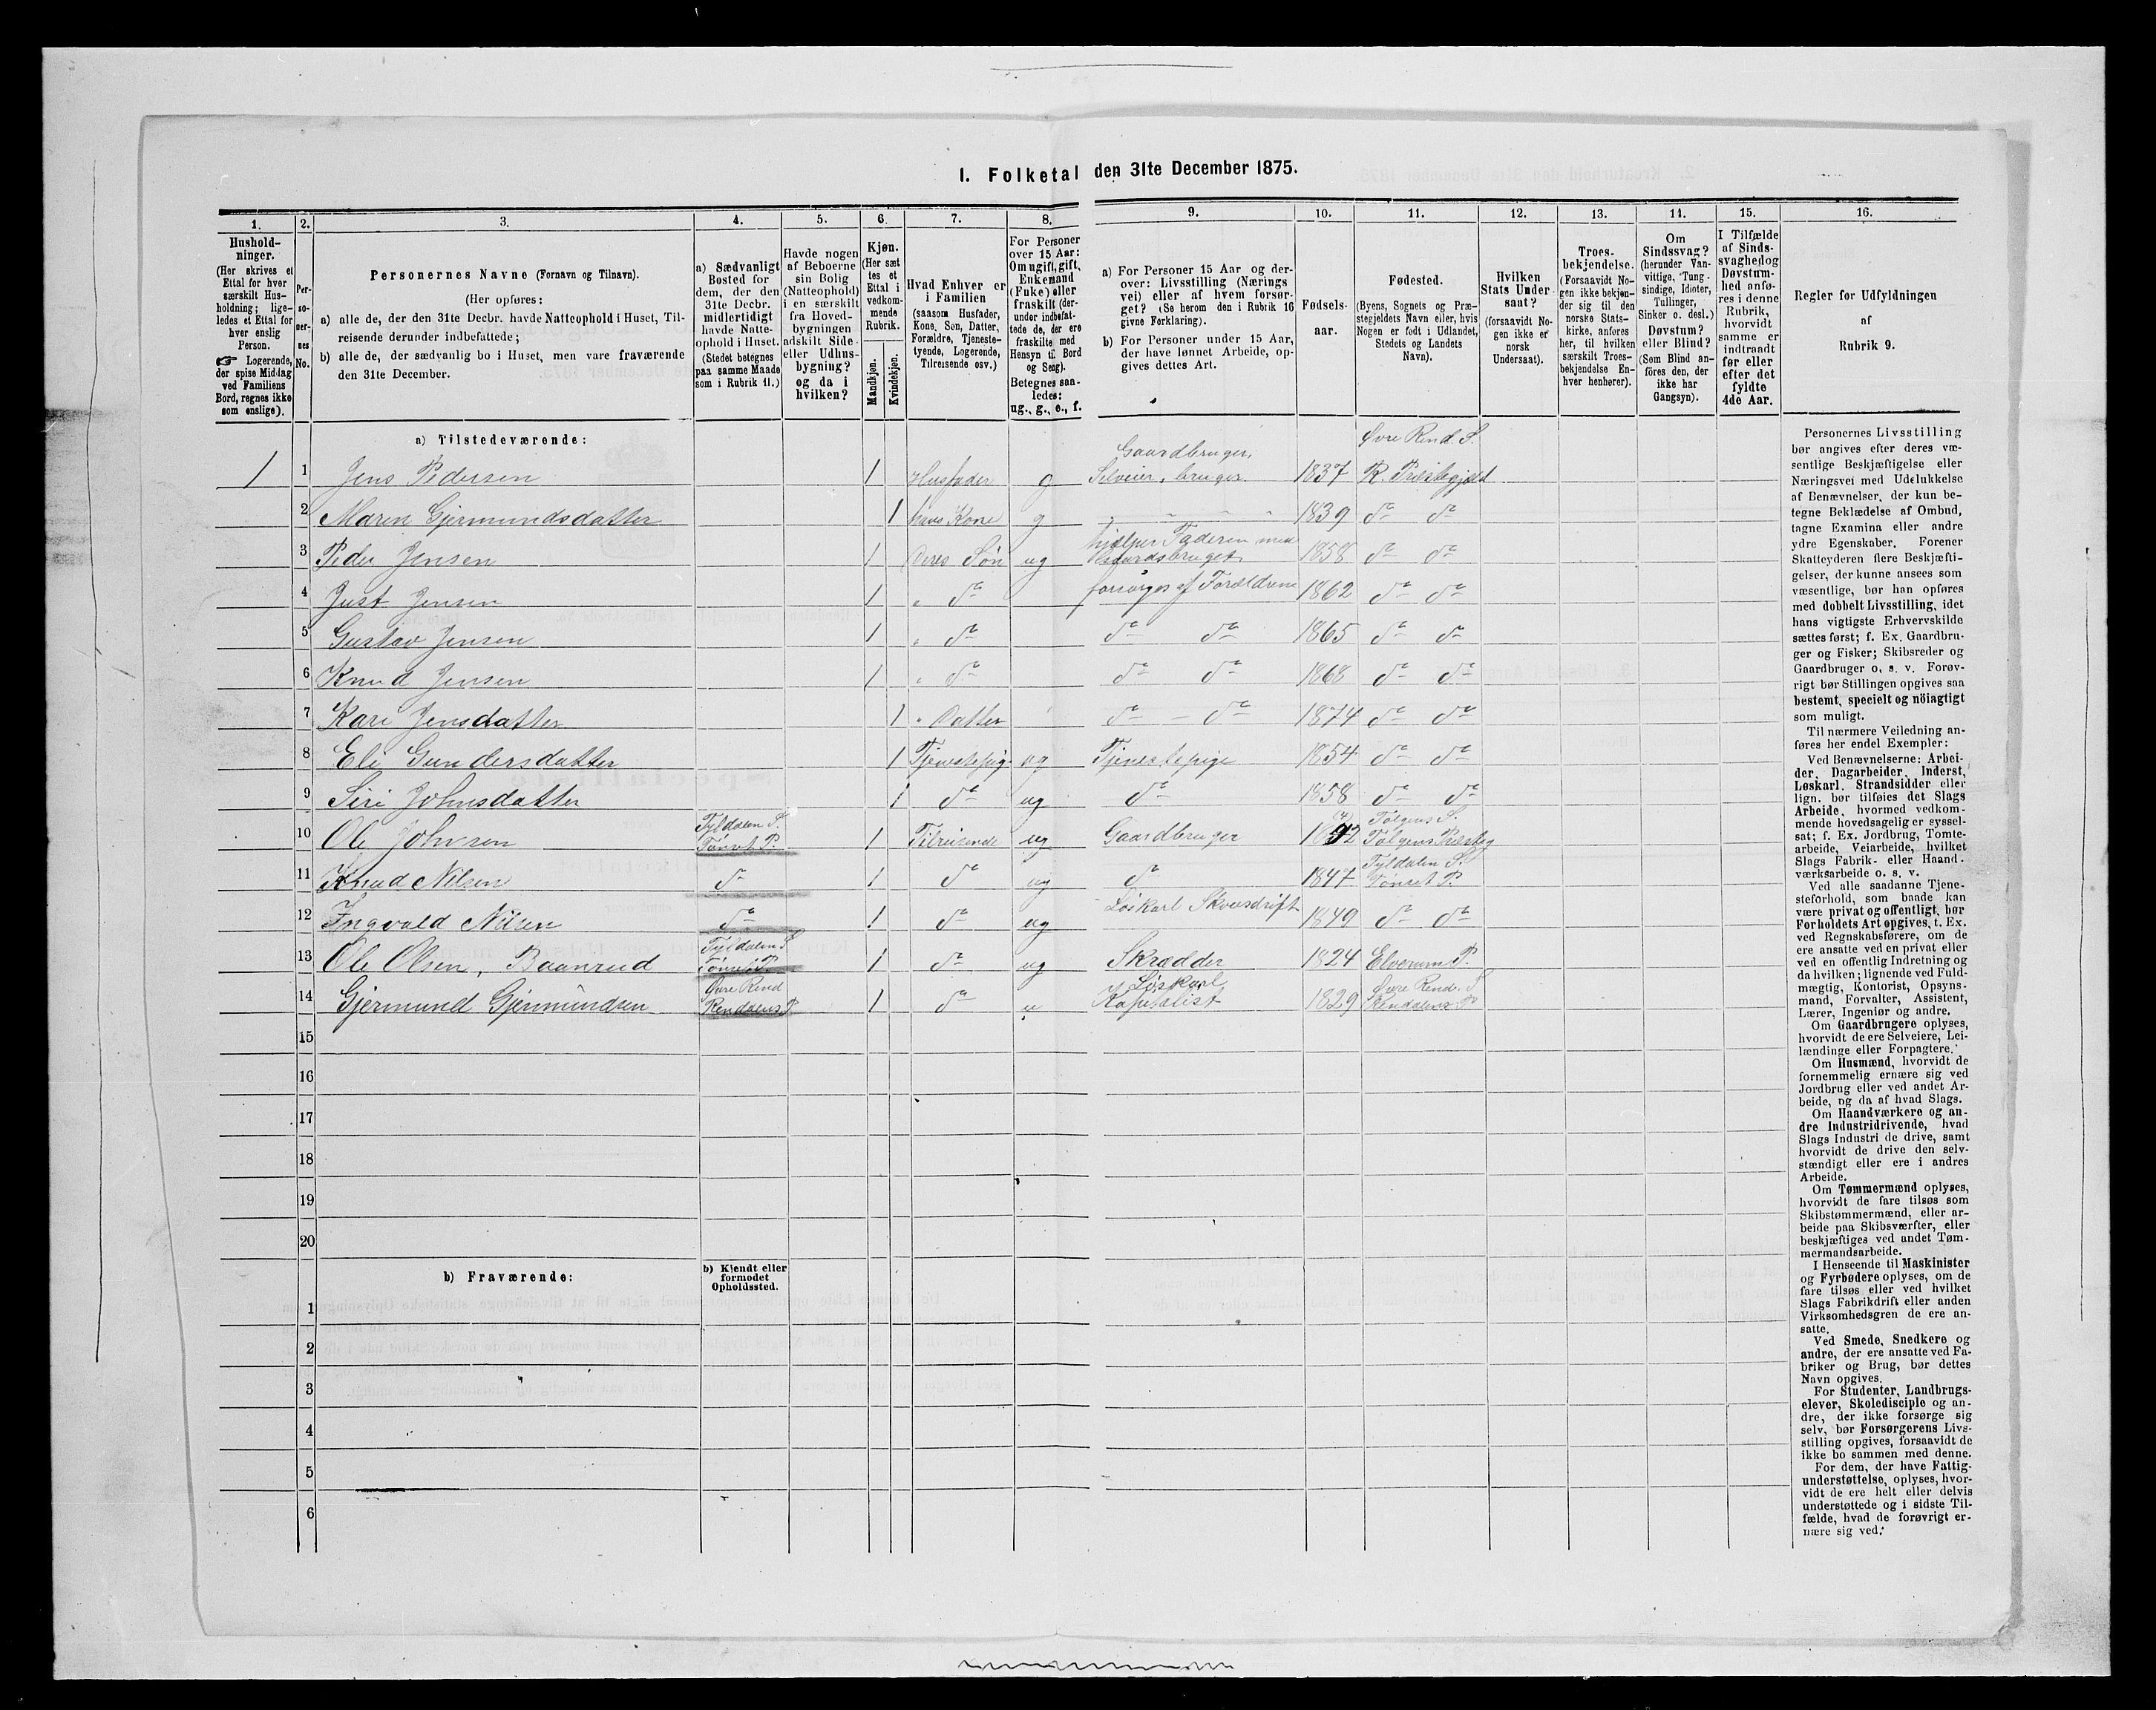 1. Folketal den 31te December 1875.
1. 2. 3. 4. 5. 6. 7. 8. 9. 10. 11. 12. 13. 14. 15. 16.
Hushold-
ninger.
(Her skrives et
Ettal for hver
særskilt Hus-
holdning; lige-
ledes et Ettal for
hver enslig
Person.
☞ Logerende,
der spise Middag
ved Familiens
Bord, regnes ikke
som enslige).
Per-
so-
ner-
nes
No.
Personernes Navne (Fornavn og Tilnavn).
(Her opføres:
a) alle de, der den 31te Decbr. havde Natteophold i Huset, Til-
reisende derunder indbefattede;
b) alle de, der sædvanlig bo i Huset, men vare fraværende
den 31te December.
a) Sædvanligt
Bosted for
dem, der den
31te Decbr.
midlertidigt
havde Natte-
ophold i Huset.
(Stedet betegnes
paa samme Maade
som i Rubrik 11.)
Havde nogen
af Beboerne
sin Bolig
(Natteophold)
i en særskilt
fra Hoved-
bygningen
adskilt Side-
eller Udhus-
bygning?
og da i
hvilken?
Kjøn.
(Her sæt
tes et
Ettal i
vedkom-
mende
Rubrik.
Mandkjøn.
Kvindekjøn.
Hvad Enhver er
i Familien
(saasom Husfader,
Kone, Søn, Datter,
Forældre, Tjeneste-
tyende, Logerende,
Tilreisende osv.)
For Personer
over 15 Aar:
Om ugift, gift,
Enkemand
(Enke) eller
fraskilt (der-
under indbefat-
tede de, der ere
fraskilte med
Hensyn til Bord
og Seng).
Betegnes saa-
ledes:
ug., g., e., f.
a) For Personer 15 Aar og der-
over: Livsstilling (Nærings
vei) eller af hvem forsør-
get? (Se herom den i Rubrik 16
givne Forklaring).
b) For Personer under 15 Aar,
der have lønnet Arbeide, op-
gives dettes Art.
Fødsels-
aar.
Fødested.
(Byens, Sognets og Præ-
stegjeldets Navn eller, hvis
Nogen er født i Udlandet,
Stedets og Landets
Navn).
Hvilken
Stats Under-
saat?
(forsaavidt No-
gen ikke er
norsk
Undersaat).
Troes-
bekjendelse.
(Forsaavidt No-
gen ikke bekjen-
der sig til den
norske Stats-
kirke, anføres
her, til hvilken
særskilt Troes-
bekjendelse En-
hver henhører).
Om
Sindssvag?
(herunder Van-
vittige, Tung-
sindige, Idioter,
Tullinger,
Sinker o. desl.)
Døvstum?
eller Blind?
(Som Blind an-
föres den, der
ikke har
Gangsyn).
I Tilfælde
af Sinds-
svaghed og
Døvstum-
hed anfø-
res i denne
Rubrik,
hvorvidt
samme er
indtraadt
før eller
efter det
fyldte
4de Aar.
Regler for Udfyldningen
af
Rubrik 9.
a) Tilstedeværende:
Gaardbruger, Øvre Rend. S.
1 1 Jens Pedersen 1 Husfader g Selveier, bruger. 1837 R. Præstegjeld
2 Maren Gjermundsdatter 1 hans Kone g " " " " 1839 do do
hjelper Faderen med
3 Peder Jensen 1 Deres Søn ug Gaardsbruget 1858 do do
4 Just Jensen 1 " do forsørges af Forældrene 1862 do do
5 Gustav Jensen 1 " do do do 1865 do do
6 Knud Jensen 1 " do do do 1868 do do
7 Kari Jensdatter 1 " Datter do do 1874 do do
8 Eli Gundersdatter 1 Tjenestepig. ug Tjenestepige 1854 do do
9 Siri Johnsdatter 1 do ug do 1858 do do
Tyldalen S. Tolgens S.
10 Ole Johnsen Tönset P. 1 Tilreisende ug Gaardbruger Tolgens Præsteg
Tyldalen S.
11 Knud Nilsen do 1 do ug do 1847 Tönset P.
12 Ingvald Nilsen do 1 do ug Löskarl Skovsdrift 1849 do do
Tyldalen S
13 Ole Olsen, Baanrud Tönset P. 1 do ug Skrædder 1824 Elverum P.
Øvre Rend Löskarl Øvre Rend. S
14 Gjermund Gjermundsen Rendalens P. 1 do u Kapitalist 1829 Rendalens P
15
16
17
18
19
20
b) Fraværende:
b) Kjendt eller
formodet
Opholdssted.
1
2
3
4
5
6
Personernes Livsstilling
bør angives efter deres væ-
sentlige Beskjæftigelse eller
Næringsvei med Udelukkelse
af Benævnelser, der kun be-
tegne Beklædelse af Ombud,
tagne Examina eller andre
ydre Egenskaber. Forener
Skatteyderen flere Beskjæfti-
gelser, der kunne ansees som
væsentlige, bør han opføres
med dobbelt Livsstilling, idet
hans vigtigste Erhvervskilde
sættes først; f. Ex. Gaardbru-
ger og Fisker; Skibsreder og
Gaardbruger o. s. v. Forøv-
rigt bør Stillingen opgives saa
bestemt, specielt og nöiagtigt
som muligt.
Til nærmere Veiledning an-
føres her endel Exempler:
Ved Benævnelserne: Arbei-
der, Dagarbeider, Inderst,
Løskarl, Strandsidder eller
lign. bør tilføies det Slags
Arbeide, hvormed vedkom-
mende hovedsagelig er syssel-
sat; f. Ex. Jordbrug, Tomte-
arbeide, Veiarbeide, hvilket
Slags Fabrik- eller Haand-
værksarbeide o. s. v.
Ved alle saadanne Tjene-
steforhold, som baade kan
være privat og offentligt, bør
Forholdets Art opgives, t. Ex.
ved Regnskabsførere, om de
ere ansatte ved en privat eller
ved en offentlig Indretning og
da hvilken; lignende ved Fuld-
mægtig, Kontorist, Opsyns-
mand, Forvalter, Assistent,
Lærer, Ingeniør og andre.
Om Gaardbrugere oplyses,
hvorvidt de ere Selveiere, Lei-
lændinge eller Forpagtere.
Om Husmænd, hvorvidt de
fornemmelig ernære sig ved
Jordbrug eller ved andet Ar-
beide, og da af hvad Slags.
Om Haandværkere og an-
dre Industridrivende, hvad
Slags Industri de drive, samt
hvorvidt de drive den selv-
stændigt eller ere i andres
Arbeide.
Om Tømmermænd oplyses,
hvorvidt de fare tilsøs som
Skibstømmermænd, eller ar-
beide paa Skibsværfter, eller
beskjæftiges ved andet Tøm-
mermandsarbeide.
I Henseende til Maskinister
og Fyrbødere oplyses, om de
fare tilsøs eller ved hvilket
Slags Fabrikdrift eller anden
Virksomhedsgren de ere an-
satte.
Ved Smede, Snedkere og
andre, der ere ansatte ved Fa-
briker og Brug, bør dettes
Navn opgives.
For Studenter, Landbrugs-
elever, Skoledisciple og an-
dre, der ikke forsørge sig
selv, bør Forsørgerens Livs-
stilling opgives, forsaavidt de
ikke bo sammen med denne.
For dem, der have Fattig-
understøttelse, oplyses, hvor-
vidt de ere helt eller delvis
understøttede og i sidste Til-
fælde, hvad de forøvrigt er-
nære sig ved.